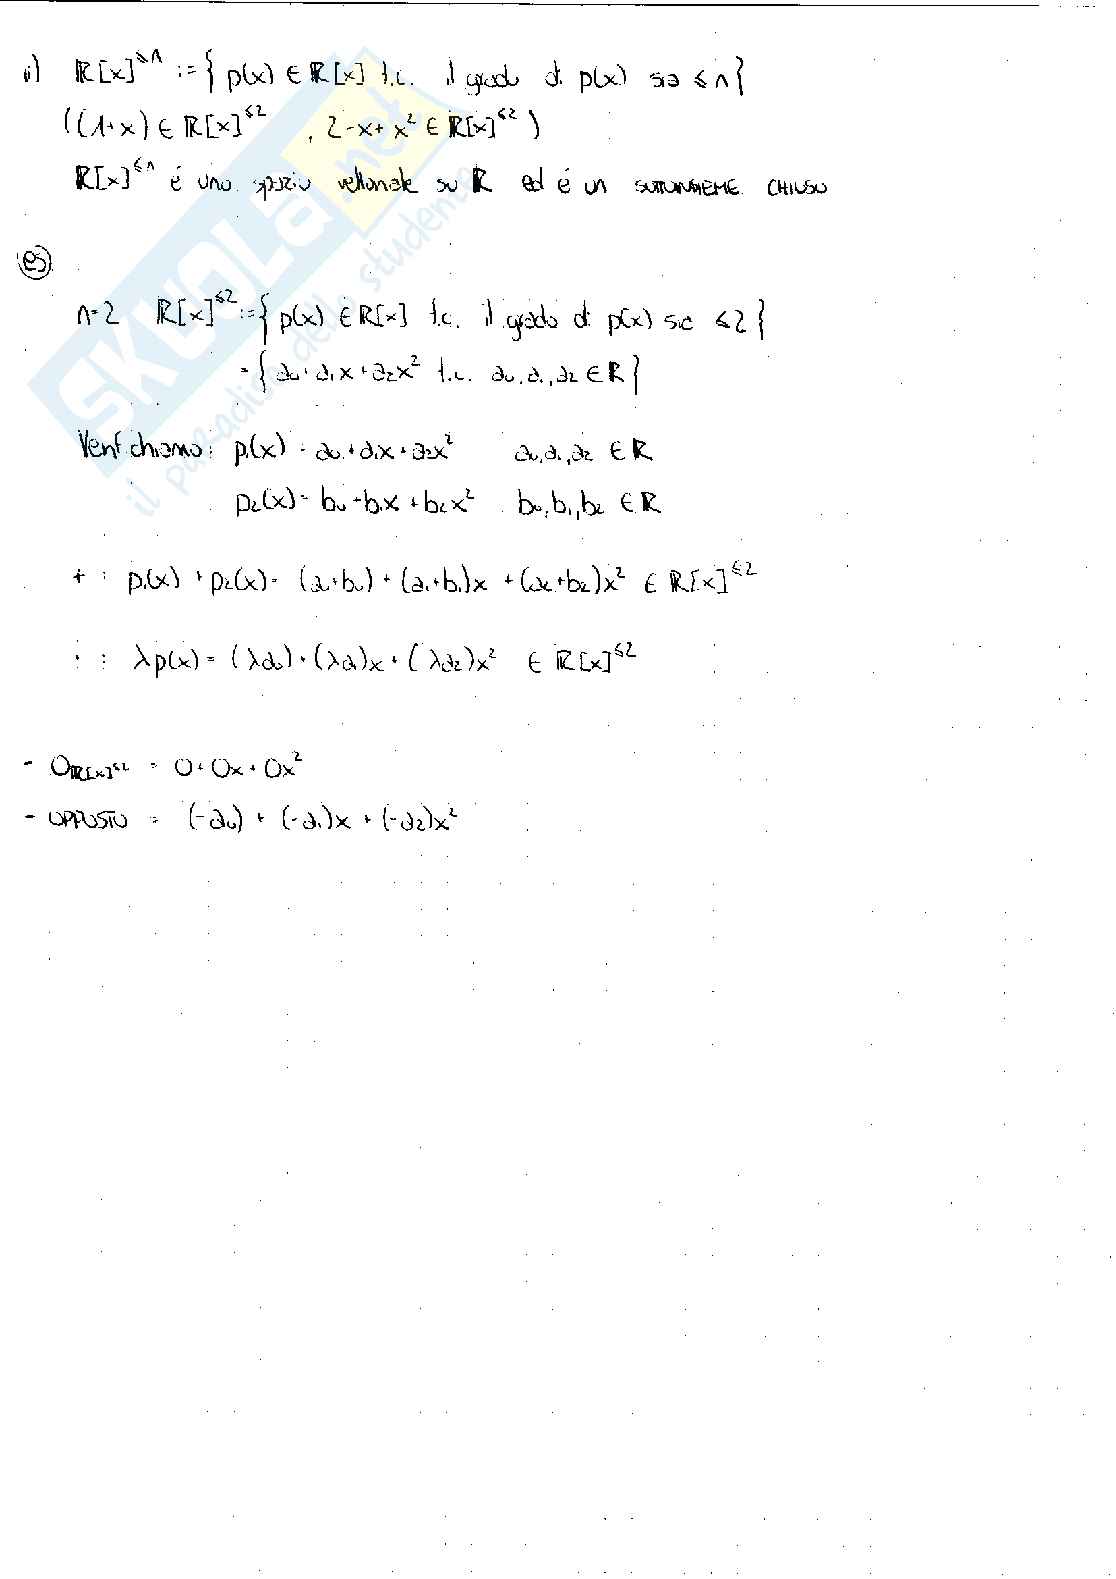 ii) ℝ[x]^≤n := { p(x) ∈ ℝ[x] t.c. il grado di p(x) sia ≤ n }
((1+x) ∈ ℝ[x]^≤2 , 2-x+x² ∈ ℝ[x]^≤2 )
ℝ[x]^≤n é uno spazio vettoriale su ℝ ed é un SOTTOINSIEME CHIUSO
es
n=2 ℝ[x]^≤2 := { p(x) ∈ ℝ[x] t.c. il grado di p(x) sia ≤2 }
= { a₀+a₁x+a₂x² t.c. a₀,a₁,a₂ ∈ ℝ }
Verifichiamo: p₁(x) = a₀+a₁x+a₂x² a₀,a₁,a₂ ∈ ℝ
p₂(x) = b₀+b₁x+b₂x² b₀,b₁,b₂ ∈ ℝ
+ : p₁(x) + p₂(x) = (a₀+b₀) + (a₁+b₁)x + (a₂+b₂)x² ∈ ℝ[x]^≤2
· : λp(x) = (λa₀) + (λa₁)x + (λa₂)x² ∈ ℝ[x]^≤2
- 0_ℝ[x]^≤2 = 0+0x+0x²
- OPPOSTO = (-a₀) + (-a₁)x + (-a₂)x²
SKUOLA.net
il paradiso dello studente